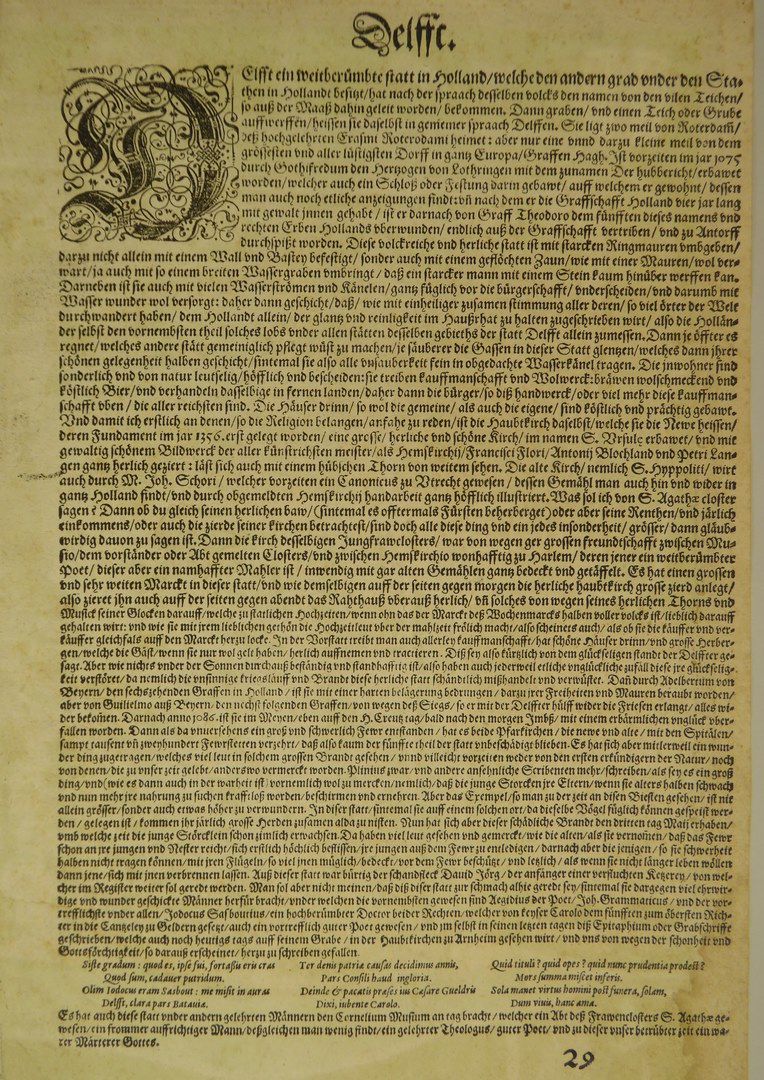 Delfft.
DElfft ein weitberümbte statt in Holland/welche den andern grad vnder den Sta-
then in Hollandt besitzt/hat nach der spraach desselben volcks den namen von den vilen Teichen/
so auß der Maaß dahin geleit worden/bekommen. Dann graben/vnd einen Teich oder Grube
auffwerffen/heissen sie daselbst in gemeiner spraach Delffen. Sie ligt zwo meil von Roterdam/
deß hochgelehrten Erasmi Roterodami heimet: aber nur eine vnnd darzu kleine meil von dem
grössesten vnd aller lüstigsten Dorff in gantz Europa/Graffen Hagh. Ist vorzeiten im jar 1075
durch Gothifredum den Hertzogen von Lothringen mit dem zunamen Der hubbericht/erbawet
worden/welcher auch ein Schloß oder Festung darin gebawt/auff welchem er gewohnt/dessen
man auch noch etliche anzeigungen findt: vñ nach dem er die Graffschafft Holland vier jar lang
mit gewalt jnnen gehabt/ist er darnach von Graff Theodoro dem fünfften dieses namens vnd
rechten Erben Hollands vberwunden/endlich auß der Graffschafft vertriben/vnd zu Antorff
durchspißt worden. Diese volckreiche vnd herliche statt ist mit starcken Ringmauren vmbgeben/
darzu nicht allein mit einem Wall vnd Bastey befestigt/sonder auch mit einem geflöchten Zaun/wie mit einer Mauren/wol ver-
wart/ja auch mit so einem breiten Wassergraben vmbringt/daß ein starcker mann mit einem Stein kaum hinüber werffen kan.
Darneben ist sie auch mit vielen Wasserströmen vnd Känelen/gantz füglich vor die bürgerschafft/vnderscheiden/vnd darumb mit
Wasser wunder wol versorgt: daher dann geschicht/daß/wie mit einheiliger zusamen stimmung aller deren/so viel örter der Welt
durchwandert haben/dem Hollandt allein/der glantz vnd reinligkeit im Haußrhat zu halten zugeschrieben wirt/also die Hollän-
der selbst den vornembsten theil solches lobs vnder allen stätten desselben gebieths der statt Delfft allein zumessen. Dann je öffter es
regnet/welches andere statt gemeiniglich pflegt wüst zu machen/je säuberer die Gassen in dieser Statt glentzen/welches dann jhrer
schönen gelegenheit halben geschicht/sintemal sie also alle vnsauberkeit fein in obgedachte Wasserkänel tragen. Die inwohner sind
sonderlich vnd von natur leutselig/höfflich vnd bescheiden: sie treiben kauffmanschafft vnd Wolwerck: bräwen wolschmeckend vnd
köstlich Bier/vnd verhandeln dasselbige in fernen landen/daher dann die bürger/so diß handwerck/oder viel mehr diese kauffman-
schafft vben/die aller reichsten sind. Die Häuser drinn/so wol die gemeine/als auch die eigene/sind köstlich vnd prächtig gebawt.
Vnd damit ich erstlich an denen/so die Religion belangen/anfahe zu reden/ist die Hauptkirch daselbst/welche sie die Newe heissen/
deren Fundament im jar 1356. erst gelegt worden/eine grosse/herliche vnd schöne Kirch/im namen S. Vrsule erbawet/vnd mit
gewaltig schönem Bildwerck der aller künstrichsten meister/als Hemskirchij/Francisci Flori/Antonij Blochland vnd Petri Lan-
gen gantz herlich geziert: läst sich auch mit einem hübschen Thorn von weitem sehen. Die alte Kirch/nemlich S. Hyppoliti/wirt
auch durch M. Joh. Schori/welcher vorzeiten ein Canonicus zu Vtrecht gewesen/dessen Gemähl man auch hin vnd wider in
gantz Holland findt/vnd durch obgemeldten Hemskirchij handarbeit gantz höfflich illustriert. Was sol ich von S. Agathæ closter
sagen? Dann ob du gleich seinen herlichen baw/(sintemal es offtermals Fürsten beherberget) oder aber seine Renthen/vnd järlich
einkommens/oder auch die zierde seiner kirchen betrachtest/sind doch alle diese ding vnd ein jedes insonderheit/grösser/dann gläub-
wirdig dauon zu sagen ist. Dann die kirch desselbigen Jungfrawclosters/war von wegen der grossen freundtschafft zwischen Mu-
sio/dem vorständer oder Abt gemelten Closters/vnd zwischen Hemskirchio wonhafftig zu Harlem/deren jener ein weitberümbter
Poet/dieser aber ein namhaffter Mahler ist/inwendig mit gar alten Gemählen gantz bedeckt vnd getäffelt. Es hat einen grossen
vnd sehr weiten Marckt in dieser statt/vnd wie demselbigen auff der seiten gegen morgen die herliche haubtkirch grosse zierd anlegt/
also zieret jhn auch auff der seiten gegen abendt das Rahthauß vberauß herlich/vñ solches von wegen seines herlichen Thorns vnd
Musick seiner Glocken darauff/welche zu stattlichen Hochzeiten/wenn ohn das der Marckt deß Wochenmarcks halben voller volcks ist/lieblich darauff
gehalten wirt: vnd wie sie mit jrem lieblichen gethön die Hochzeitleut vber der mahlzeit frölich macht/also scheinet es auch/als ob sie die käuffer vnd ver-
käuffer gleichfals auff den Marckt herzu locke. In der Vorstatt treibt man auch allerley kauffmanschafft/hat schöne Häuser drinn/vnd grosse Herber-
gen/welche die Gäst/wenn sie nur wol gelt haben/herlich auffnemen vnd tractieren. Diß sey also kürtzlich von dem glückseligen standt der Delffter ge-
sagt. Aber wie nichts vnder der Sonnen durchauß beständig vnd standhafftig ist/also haben auch jederweil etliche vnglückliche zufäll diese jre glückselig-
keit verstöret/da nemlich die vnsinnige kriegsläuff vnd Brandt diese herliche statt schändlich mißhandelt vnd verwüstet. Dañ durch Adelbertum von
Beyern/den sechszehenden Graffen in Holland/ist sie mit einer harten belägerung bedrungen/darzu jrer Freiheiten vnd Mauren beraubt worden/
aber von Guilielmo auß Beyern/den nechst folgenden Graffen/von wegen deß Siegs/so er mit der Delffter hülff wider die Friesen erlangt/alles wi-
der bekomen. Darnach anno 1086. ist sie im Meyen/eben auff den H. Creutz tag/bald nach den morgen Imbß/mit einem erbärmlichen vnglück vber-
fallen worden. Dann als da vnuersehens ein groß vnd schwerlich Fewr entstanden/hat es beide Pfarkirchen/die newe vnd alte/mit den Spitälen/
sampt tausent vñ zweyhundert Fewrstetten verzehrt/daß also kaum der fünffte theil der statt vnbeschädigt blieben. Es hat sich aber mitlerweil ein wun-
der ding zugetragen/welches viel leut in solchem grossen Brandt gesehen/vnnd villeicht vorzeiten weder von den ersten erkündigern der Natur/noch
von denen/die zu vnser zeit gelebt/anderswo vermerckt worden. Plinius zwar vnd andere ansehnliche Scribenten mehr/schreiben/als sey es ein groß
ding/vnd (wie es dann auch in der warheit ist) vornemlich wol zu mercken/nemlich/daß die junge Storcken jre Eltern/wenn sie alters halben schwach
vnd nun mehr jre nahrung zu suchen krafftloß worden/beschirmen vnd ernehren. Aber das Exempel/so man zu der zeit an diesen Biesten gesehen/ist nit
allein grösser/sonder auch etwas höher zu verwundern. In dieser statt/sintemal sie auff einem solchen ort/da dieselbe Vögel füglich können gespeist wer-
den/gelegen ist/kommen jhr järlich grosse Herden zusamen alda zu nisten. Nun hat sich aber dieser schädliche Brandt den dritten tag Maij erhaben/
vmb welche zeit die junge Störcklein schon zimlich erwachsen. Da haben viel leut gesehen vnd gemerckt/wie die alten/als sie vernomen/daß das Fewr
schon an jre jungen vnd Nester reicht/sich erstlich höchlich beflissen/jre jungen auß dem Fewr zu entledigen/darnach aber die jenigen/so sie schwerheit
halben nicht tragen können/mit jren Flügeln/so viel jnen müglich/bedeckt/vor dem Fewr beschützt/vnd letzlich/als wenn sie nicht länger leben wöllen
dann jene/sich mit jnen verbrennen lassen. Auß dieser statt war bürtig der schandfleck Dauid Jörg/der anfänger einer verfluchten Ketzerey/von wel-
cher im Register weiter sol geredt werden. Man sol aber nicht meinen/daß diß dieser statt zur schmach alhie geredt sey/sintemal sie dargegen viel ehrwir-
dige vnd wunder geschickte Männer herfür bracht/vnder welchen die vornembsten gewesen sind Aegidius der Poet/Joh. Grammaticus/vnd der vor-
trefflichste vnder allen/Jodocus Sasboutius/ein hochberümbter Doctor beider Rechten/welcher von keyser Carolo dem fünfften zum öbersten Rich-
ter in die Cantzeley zu Geldern gesetzt/auch ein vortrefflich guter Poet gewesen/vnd jm selbst in seinen letzten tagen diß Epitaphium oder Grabschrifft
geschrieben/welche auch noch heutigs tags auff seinem Grabe/in der Haubtkirchen zu Arnheim gesehen wirt/vnd vns von wegen der schonheit vnd
Gottsförchtigkeit/so darauß erscheinet/herzu zu schreiben gefallen.
Siste gradum: quod es, ipse fui, fortassis eris cras
Quod sum, cadauer putridum.
Olim Iodocus eram Sasbout: me misit in auras
Delfft, clara pars Batauia.
Ter denis patriæ causas decidimus annis,
Pars Consili haud ingloria.
Deinde & pacatis præses ius Cæsare Gueldris
Dixi, iubente Carolo.
Quid tituli? quid opes? quid nunc prudentia prodest?
Mors summa miscet inferis.
Sola manet virtus homini post funera, solam,
Dum viuis, hanc ama.
Es hat auch diese statt vnder andern gelehrten Männern den Cornelium Musium an tag bracht/welcher ein Abt deß Frawenclosters S. Agathæ ge-
wesen/ein frommer auffrichtiger Mann/deßgleichen man wenig findt/ein gelehrter Theologus/guter Poet/vnd zu dieser vnser betrübter zeit ein wa-
rer Märterer Gottes.
29